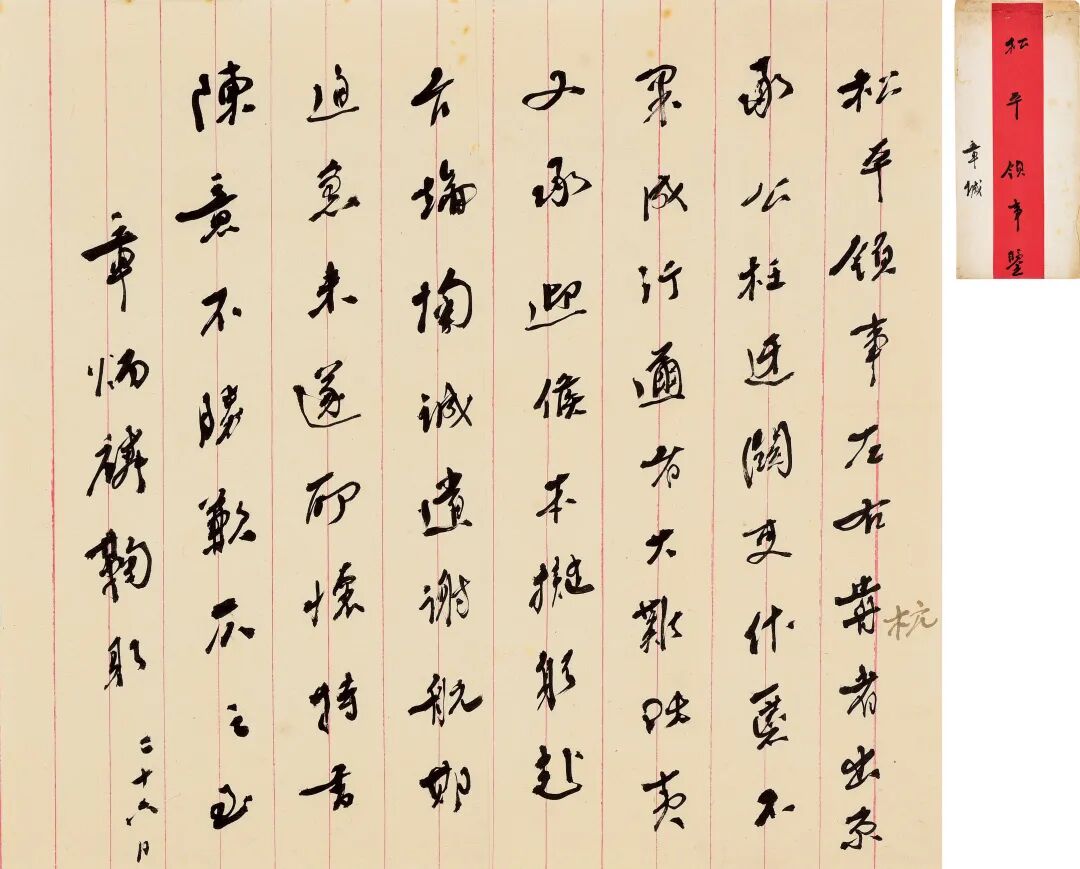 松平領事左右歬者出京
杭
承公枉迓關吏作慝不
果成行邇者大難既夷
又承迎候本擬躬赴
台端掬誠道謝航期
迫急未遂所懷特書
陳意不勝歉仄之至
章炳麟鞠躬
二十六日
松平領事鑒
章緘